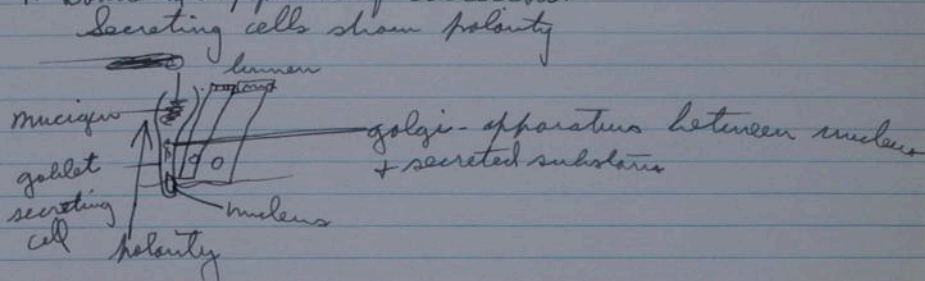 Secreting cells show polarity
lumen
mucigen
golgi-apparatus between nucleus
+ secreted substance
goblet
secreting
cell
nucleus
polarity